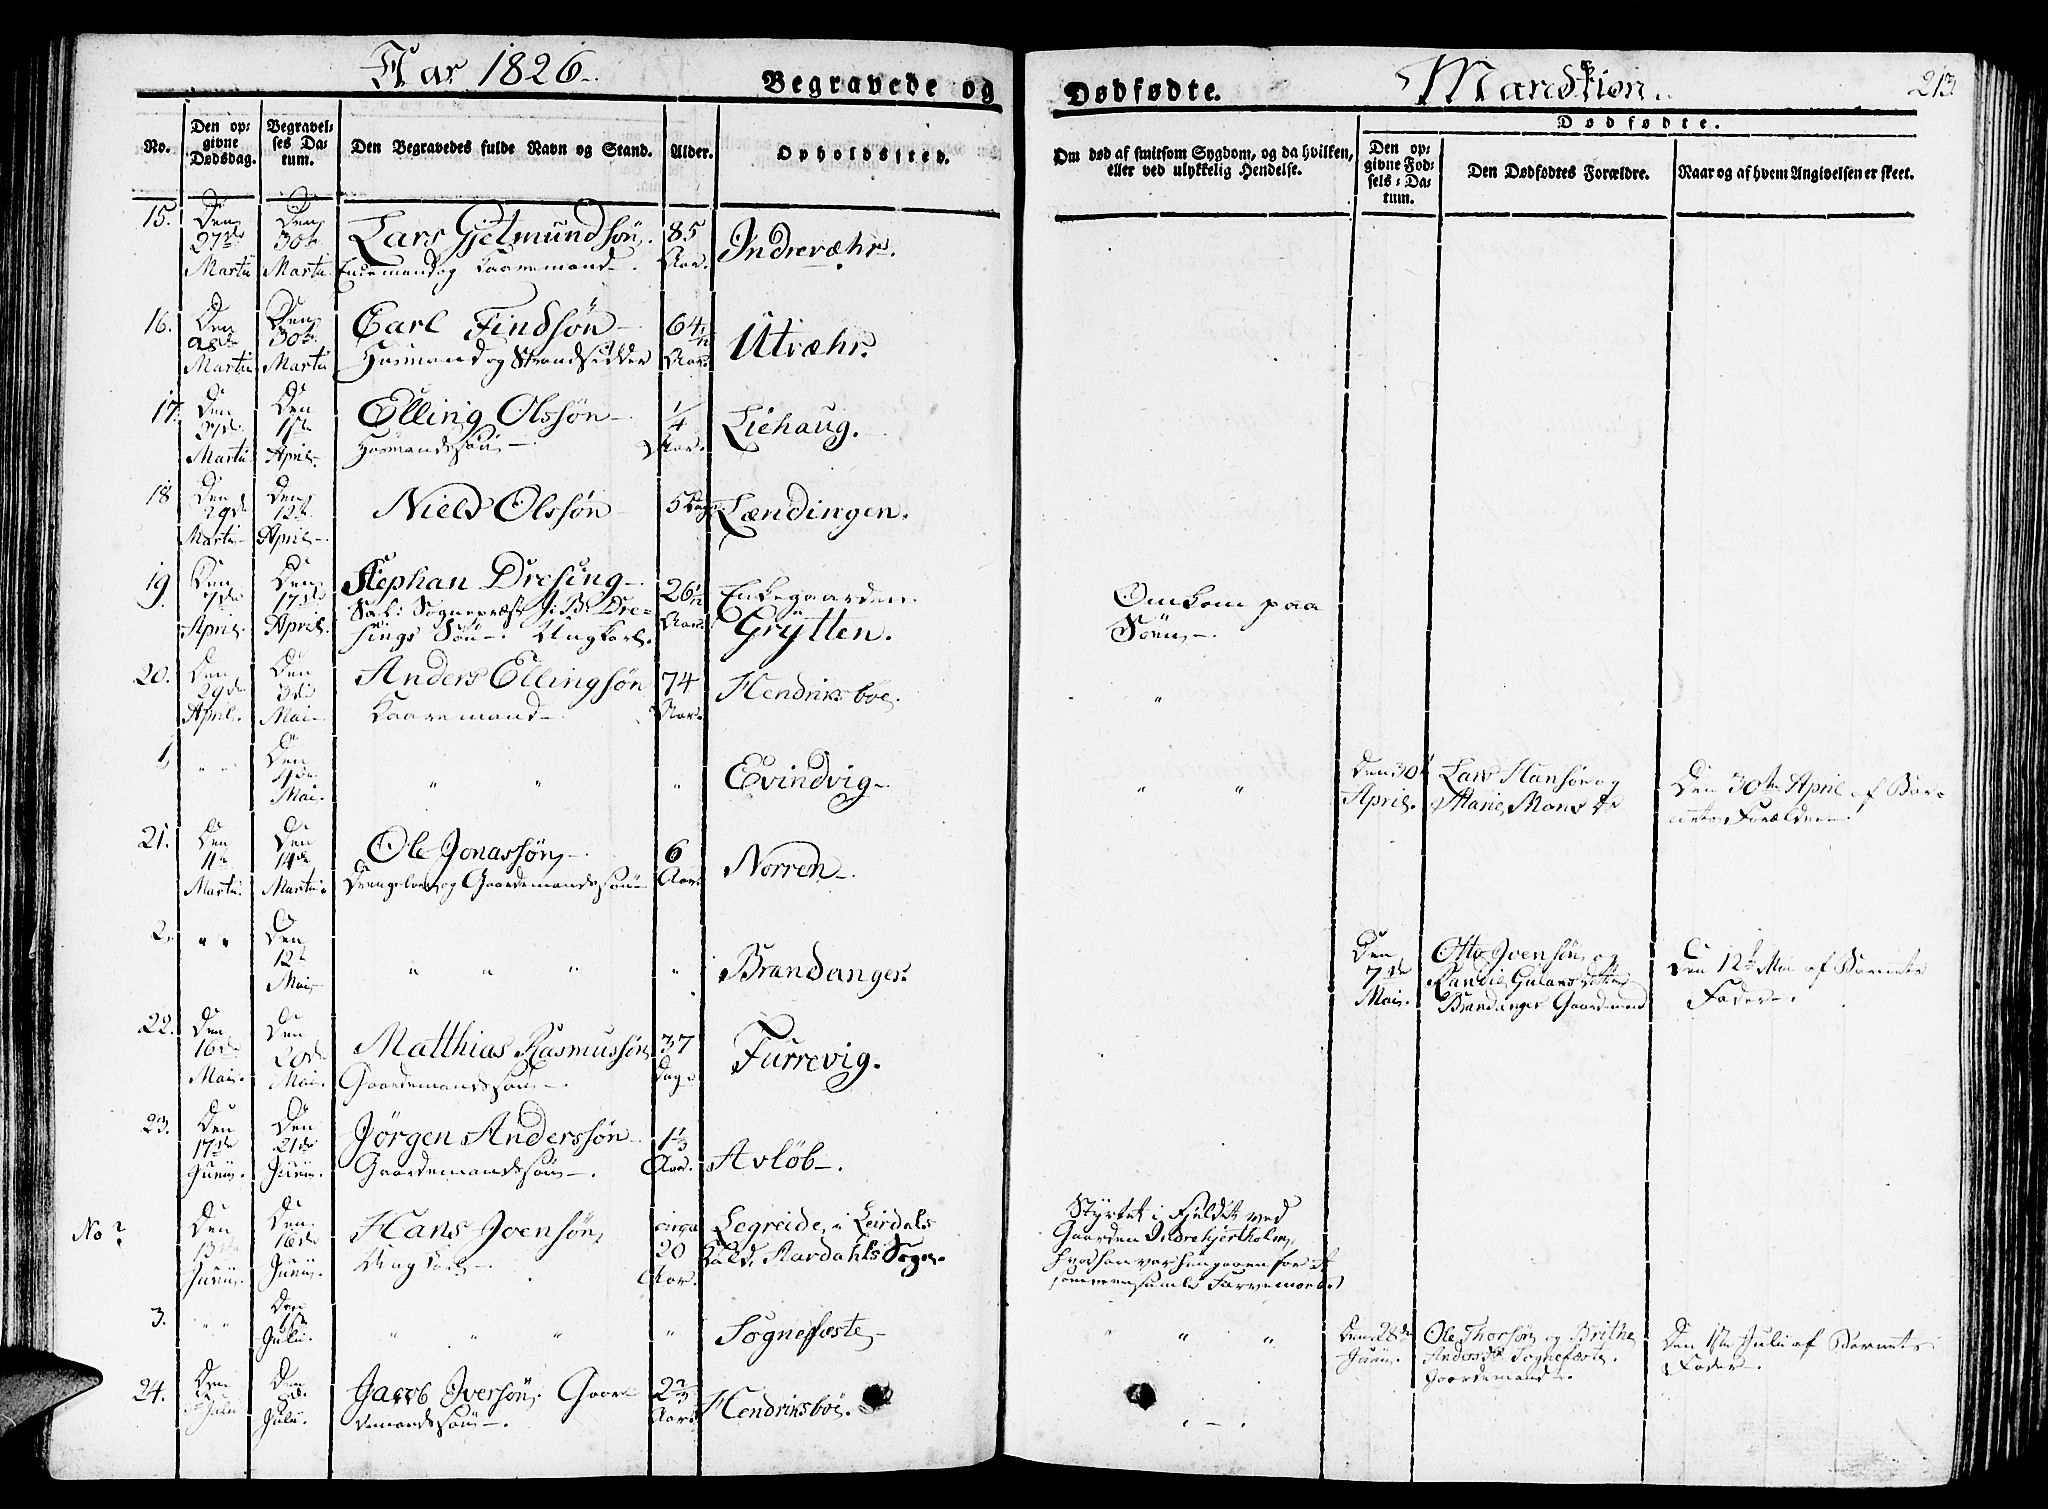 Aar 1826.
Begravede og
Dødfødte.
Mandkiøn.
213
No.
Den op-
givne
Dødsdag.
Begravel-
ses Da-
tum.
Den Begravedes fulde Navn og Stand.
Alder.
Opholdssted.
Om død af smitsom Sygdom, og da hvilken,
eller ved ulykkelig Hendelse.
Dødfødte.
Den op-
givne Fød-
sels-Da-
tum.
Den Dødfødtes Forældre.
Naar og af hvem Angivelsen er skeet.
15.
Den
27de
Martii
Den
30te
Martii
Lars Gjelmundsøn.
Enkemand og Kaaremand
85
Aar.
Indrevæhr.
16.
Den
28de
Martii
Den
30te
Martii
Carl Findsøn
Huusmand og Strandsidder
64 1/2
Aar.
Utvæhr.
17.
Den
Martii
Den
1ste
April.
Elling Olssøn
Huusmandssøn
1/4
Aar.
Liehaug.
18
Den
29de
Martii
Den
12te
April
Niels Olssøn
5 Dage
Lændingen.
19
Den
7de
April.
Den
17de
April.
Stephan Dresing
Sal: Sognepræst J: B: Dre-
sings Søn. Ungkarl.
26 1/2
Aar.
Enkegaarden
Grytten.
Omkom paa
Søen.
20.
Den
29de
April.
Den
3die
Mai
Anders Ellingsøn
Kaaremand
74
Aar.
Hendriksboe.
"
1
" "
Den
4de
Mai.
" "
"
Evindvig
" "
Den 30te
April.
Lars Hansøn og
Marie Mons Dr
Den 30te April af Bar-
nets Forældre.
21.
Den
11te
Martii
Den
14de
Martii
Ole Jonassøn
og Gaardemandssøn
6
Aar.
Norren
2.
" "
Den
12te
Mai
" " "
"
Brandanger.
Den
7de
Mai.
Otto Joensøn og
Randie Gulaks Datter
Brandanger Gaardemand
Den 12te Mai af Barnets
Fader.
22.
Den
16de
Mai.
Den
20de
Mai.
Matthias Rasmussøn
Gaardemandssøn
37
Dage
Furrevig.
23.
Den
17de
Junii.
Den
21de
Junii.
Jørgen Anderssøn
Gaardemandssøn
1 1/3
Aar.
Avløb.
No ?
Den
13de
Junii.
Den
16de
Junii.
Hans Joensøn
Ungkarl
circa
20
Aar.
Legreide i Leirdals
Aardahls Sogn.
Styrtet i Fjeldet ved
Gaarden Indrehjortholm,
hvor han var hengaaen for at
samle Farvemose
3.
" "
Den
1ste
Julii.
" " "
"
Sognefæste
" " "
Den 28de
Junii.
Ole Thorsøn og Brithe
Anders Dr Sognefæste.
Gaardemand.
Den 1ste Julii af Barnets
Fader.
24.
Den
Julii
Den
Julii.
Jacob Iversøn. Gaar-
demandssøn.
2 2/3
Aar
Hendriksboe.